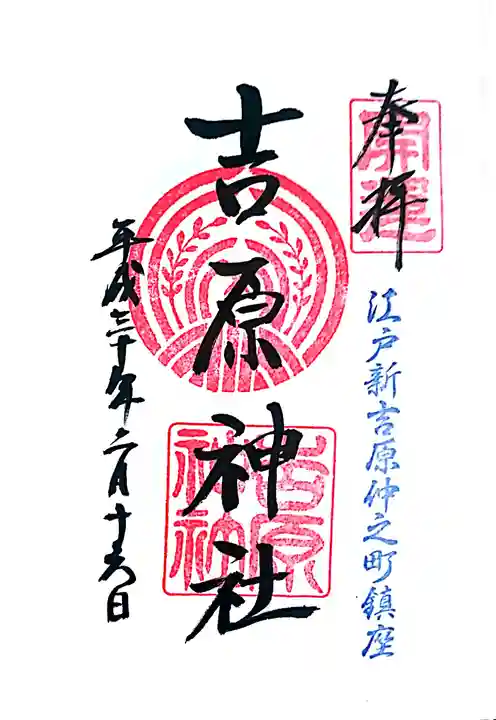 奉拝
開運
江戸新吉原仲之町鎮座
吉原神社
吉原神社
平成三十年二月十六日